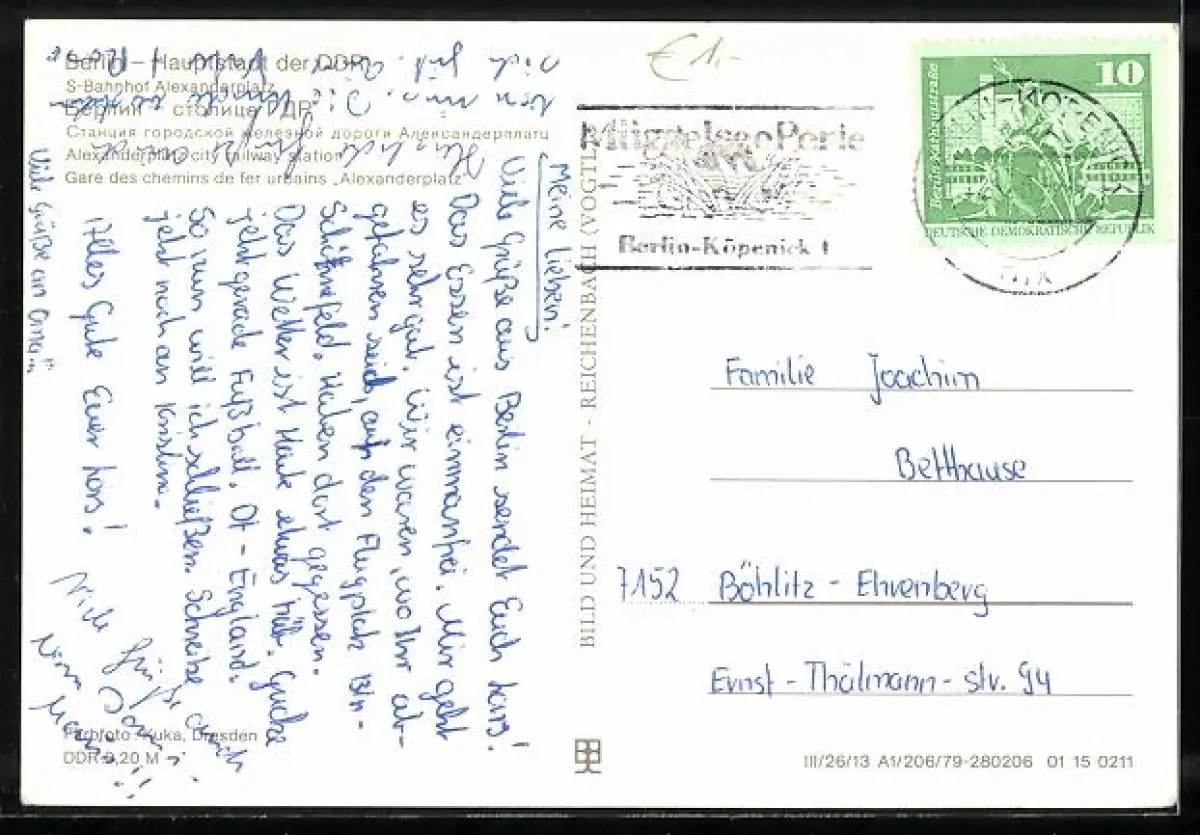 Berlin – Hauptstadt der DDR
S-Bahnhof Alexanderplatz
Берлин – столица ГДР
Станция городской железной дороги Александерплатц
Alexanderplatz city railway station
Gare des chemins de fer urbains „Alexanderplatz"
€ 1,-
Müggelsee-Perle
Berlin-Köpenick 1
10
DEUTSCHE DEMOKRATISCHE REPUBLIK
Meine Lieben!
Viele Grüße aus Berlin sendet Euch
Das Essen ist einwanfrei. Mir geht
es sehr gut. Wir waren, wo Ihr ab-
gefahren seid, auf den Flugplatz Bln-
Schönefeld. Haben dort gegessen.
Das Wetter ist Heute etwas
jetzt gerade Fußball. Ot - England.
So nun will ich schließen. Schreibe
jetzt noch an Kristin.
Alles Gute Euer
Viele Grüße an Oma
Viele Grüße auch
BILD UND HEIMAT - REICHENBACH (VOGTL
Familie Joachim
Betthause
7152 Böhlitz - Ehrenberg
Ernst - Thälmann - str. 94
Farbfoto: Kuka, Dresden
DDR 0,20 M
III/26/13 A1/206/79-280206 01 15 0211